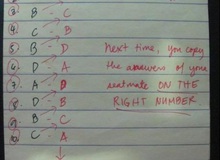 3. B - C
4. C - B
5. B - D Next time, you copy
6. D - A the answers of your
7. A - D seatmate ON THE
8. D - B RIGHT NUMBER
9. B - C
10. C - A